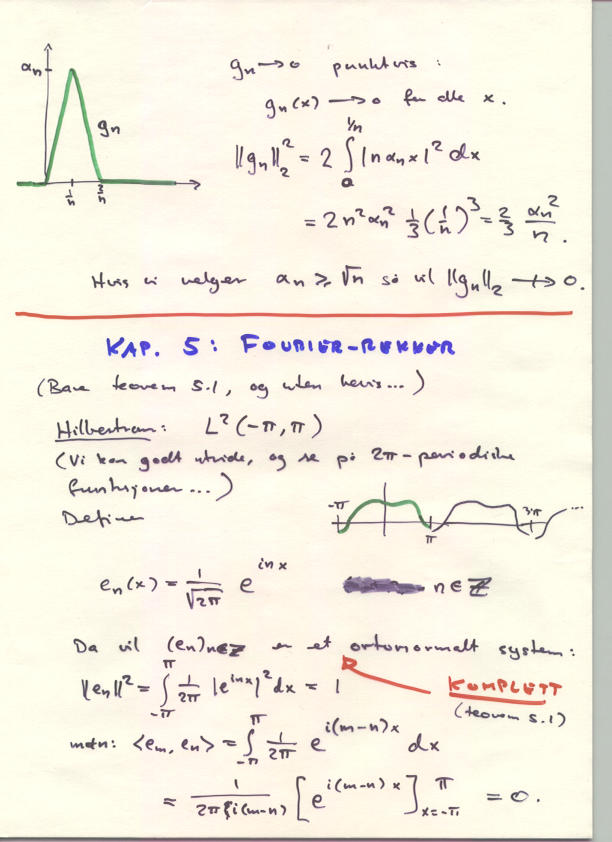 αn
gn
1/n
2/n
gn → 0 punktvis:
gn(x) → 0 for alle x.
||gn||₂² = 2 ∫₀^{1/n} |n αn x|² dx
= 2n² αn² 1/3 (1/n)³ = 2/3 αn²/n.
Hvis vi velger αn ≥ √n så vil ||gn||₂ ↛ 0.
KAP. 5: FOURIER-REKKER
(Bare teorem 5.1, og uten bevis...)
Hilbertrom: L²(-π, π)
(Vi kan godt utvide, og se på 2π-periodiske
funksjoner...)
-π π 3π ...
Definer
en(x) = 1/√2π e^{inx} n∈ℤ
Da vil (en)n∈ℤ er et ortonormalt system:
||en||² = ∫_{-π}^{π} 1/2π |e^{inx}|² dx = 1
KOMPLETT
(teorem 5.1)
m≠n: <em, en> = ∫_{-π}^{π} 1/2π e^{i(m-n)x} dx
= 1/2π i(m-n) [e^{i(m-n)x}]_{x=-π}^{π} = 0.